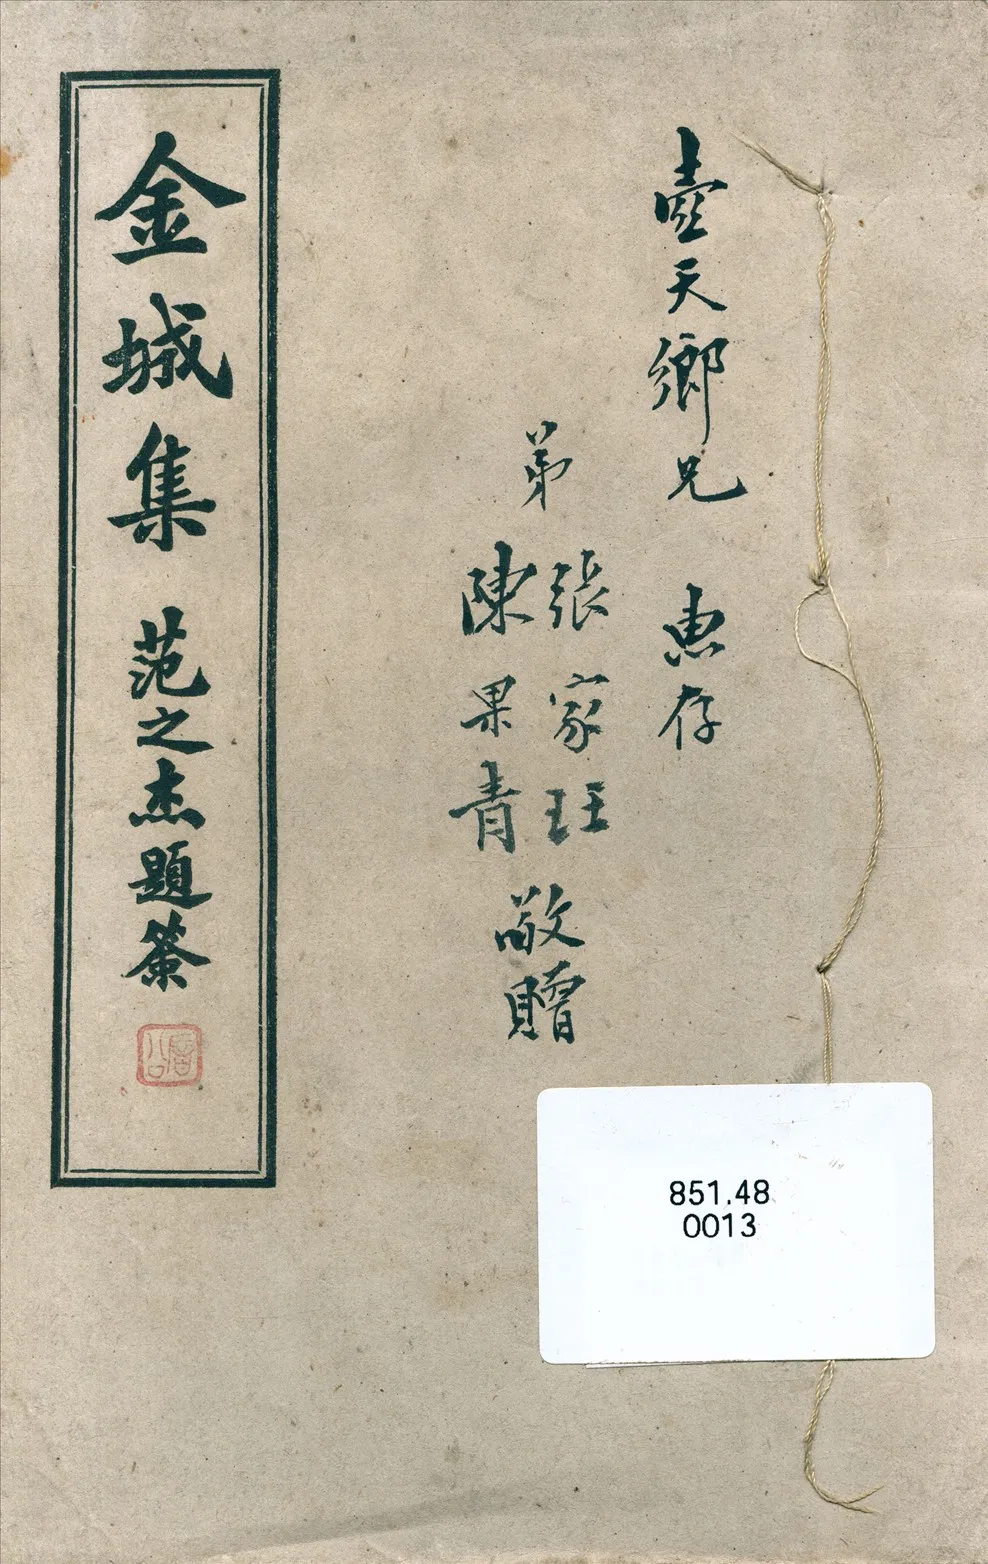 壺天鄉兄 惠存
弟
張家玨
陳果青
敬贈
金城集 范之杰題策
851.48
0013